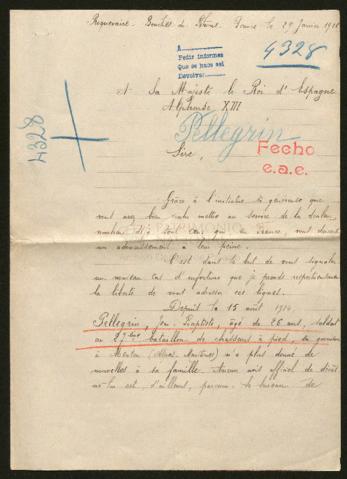 Roquevaire. Bouches du Rhône. France le 29 Janvier 19
A
Pedir informes
Que se hace así
Devolver
4328
A Sa Majesté le Roi d'Espagne
Alphonse XIII
4328
Pellegrin
Sire,
Fecho
e.a.e.
Grâce à l'initiative si généreuse que
vous avez bien voulu mettre au service de la
d'
un adoucissement à leur peine.
C'est dans le but de vous signaler
un nouveau cas d'infortune que je prends respectueusement
la liberté de vous adresser ces lignes.
Depuis le 15 août 1914
Pellegrin, Jean-Baptiste, âgé de 26 ans, soldat
au 27eme bataillon de chasseurs à pied, en garnison
à Menton (Alpes Maritimes) n'a plus donné de
nouvelles à sa famille. Aucun avis officiel de décès
ne lui est, d'ailleurs, parvenu. Le bureau de